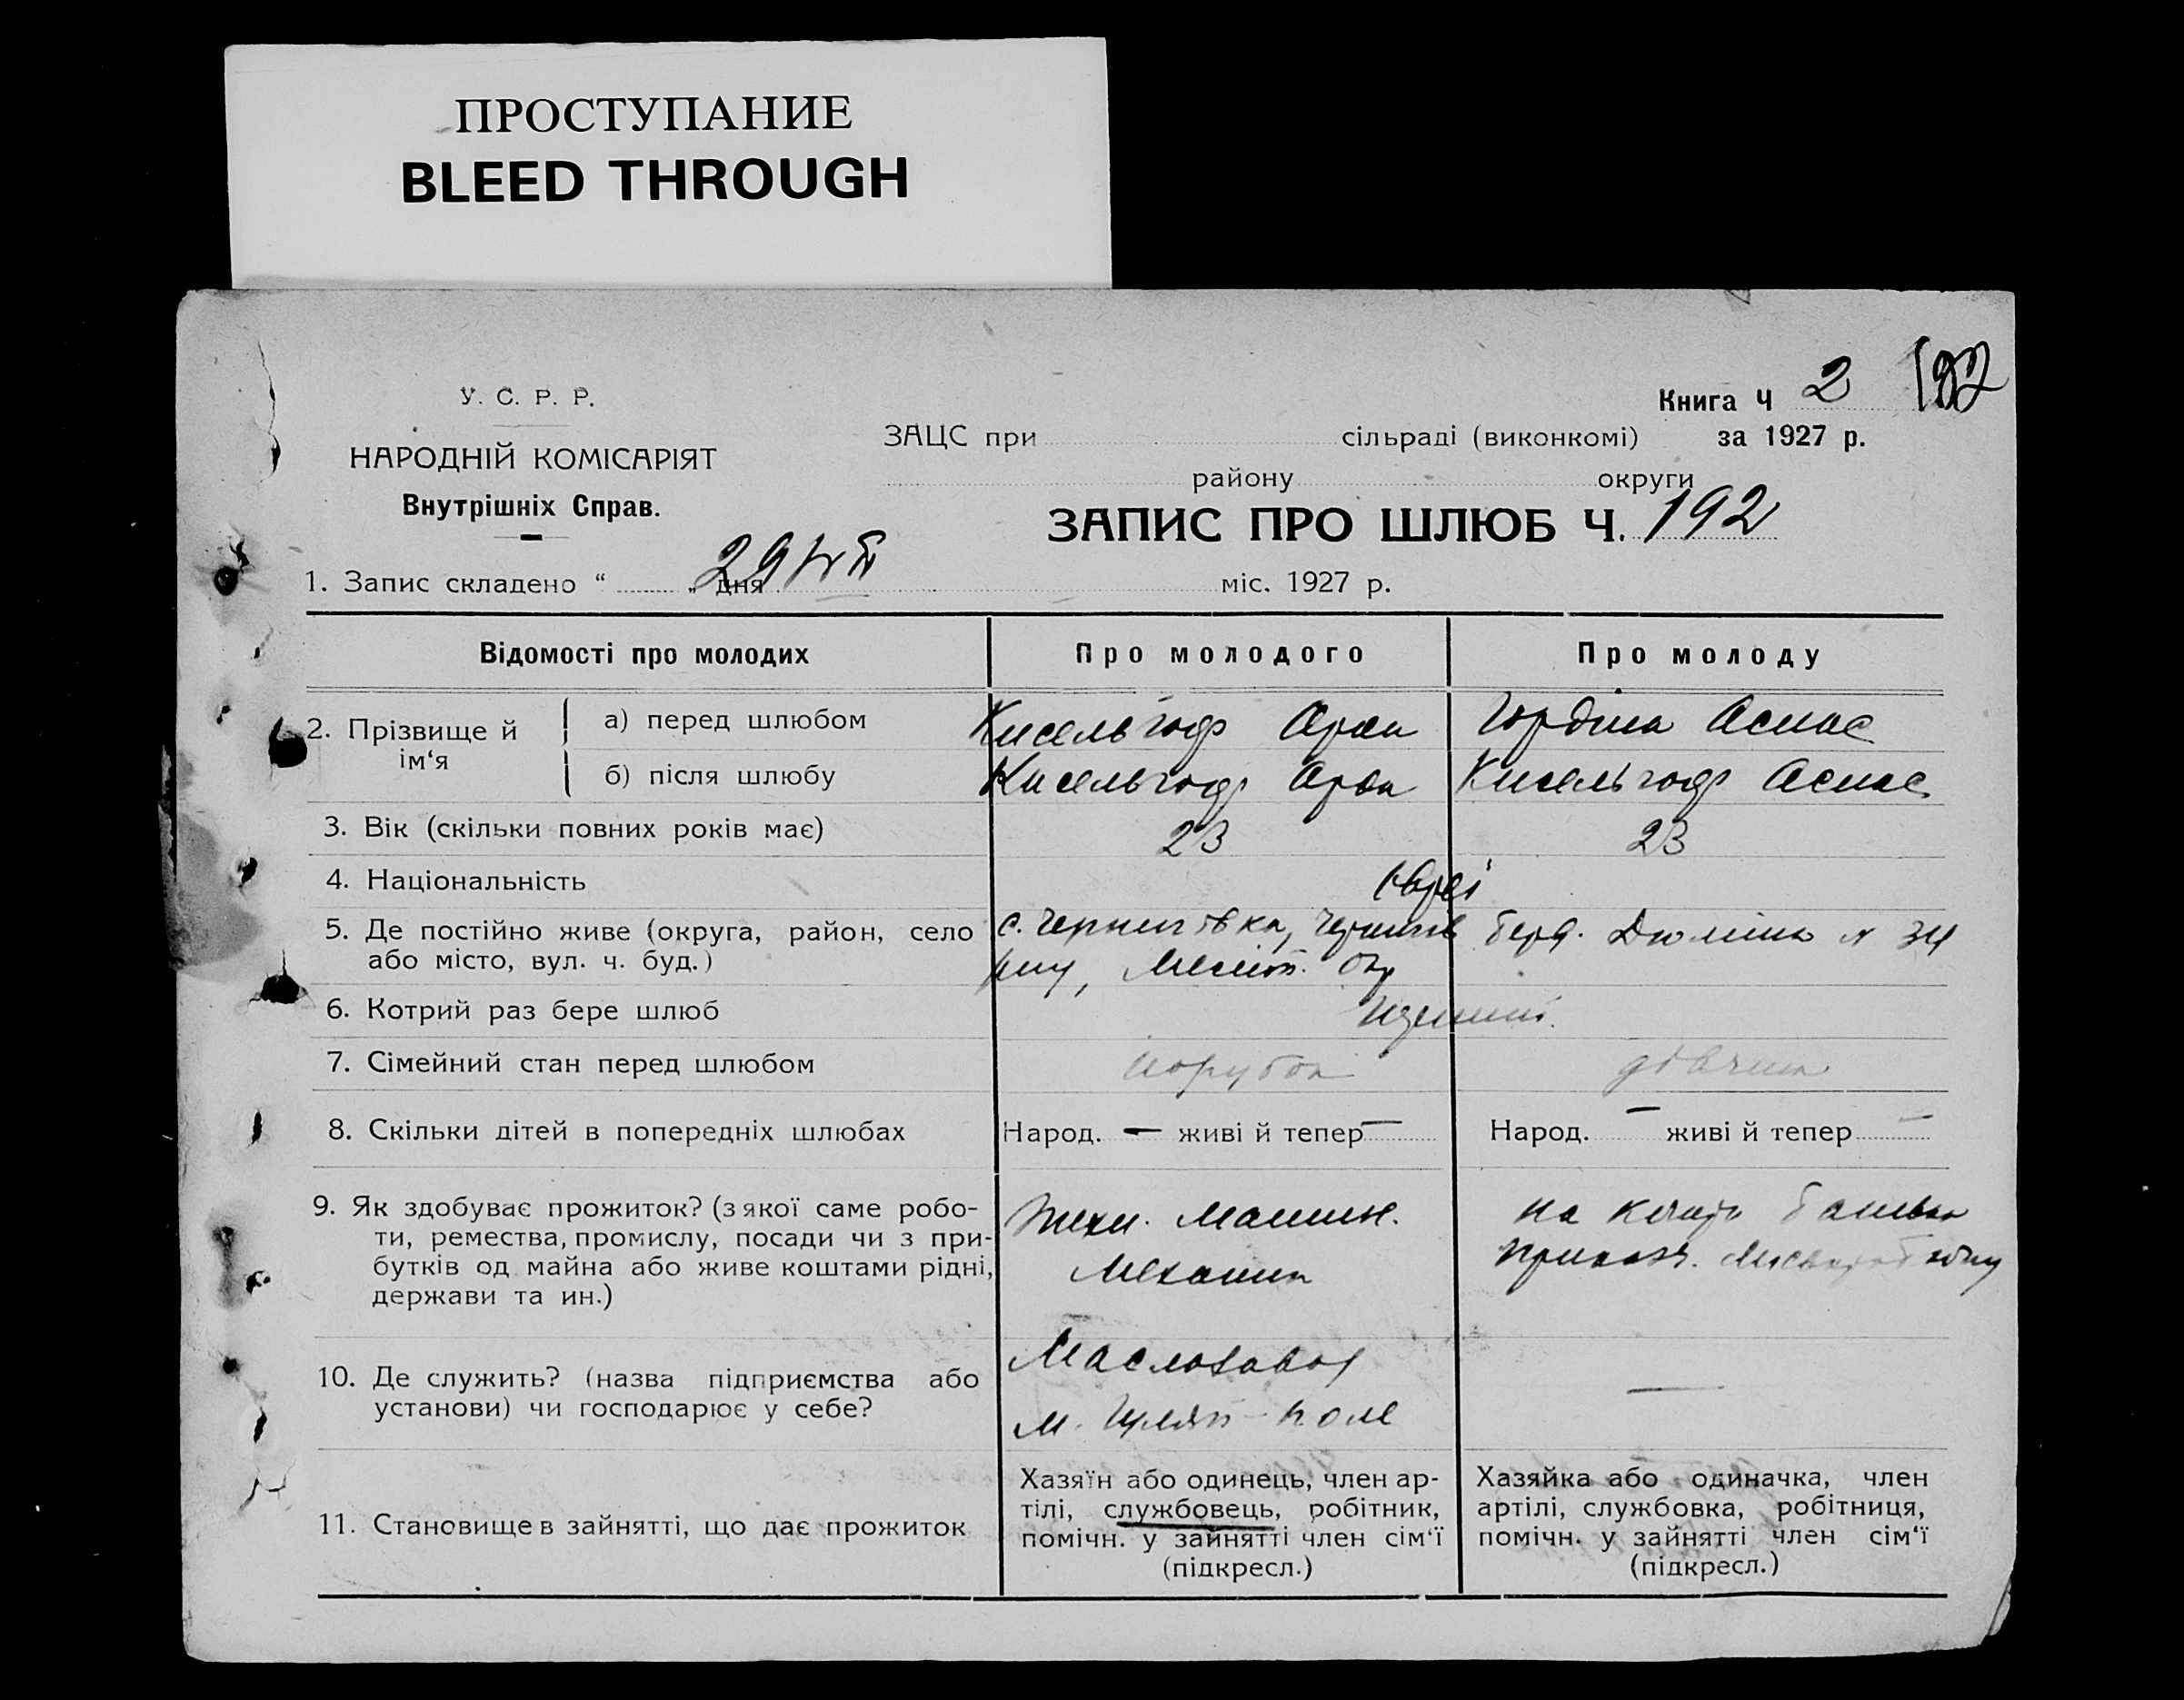 ПРОСТУПАНИЕ
BLEED THROUGH
У. С. Р. Р.
НАРОДНІЙ КОМІСАРІЯТ
Внутрішніх Справ.
Книга Ч 2 192
ЗАЦС при сільраді (виконкомі) за 1927 р.
району округи
ЗАПИС ПРО ШЛЮБ Ч. 192
1. Запис складено “ 29 „ дня міс. 1927 р.
Відомості про молодих Про молодого Про молоду
2. Прізвище й ім‘я
а) перед шлюбом Кисельгоф Арон Гордіна Аснас
б) після шлюбу Кисельгоф Арон Кисельгоф Аснас
3. Вік (скільки повних років має) 23 23
4. Національність Євреї
5. Де постійно живе (округа, район, село
або місто, вул. ч. буд.)
с. Чернигівка,
Берд. Дюміна № 34
6. Котрий раз бере шлюб
7. Сімейний стан перед шлюбом парубок дівчина
8. Скільки дітей в попередніх шлюбах Народ. — живі й тепер — Народ. — живі й тепер —
9. Як здобуває прожиток? (з якої саме робо-
ти, ремества, промислу, посади чи з при-
бутків од майна або живе коштами рідні,
держави та ин.)
Техн. машин.
Механик
на кошти
10. Де служить? (назва підприємства або
установи) чи господарює у себе?
Маслозавод
м. Гуляй-поле
—
11. Становище в зайнятті, що дає прожиток
Хазяїн або одинець, член ар-
тілі, службовець, робітник,
помічн. у зайнятті член сім‘ї
(підкресл.)
Хазяйка або одиначка, член
артілі, службовка, робітниця,
помічн. у зайнятті член сім‘ї
(підкресл.)